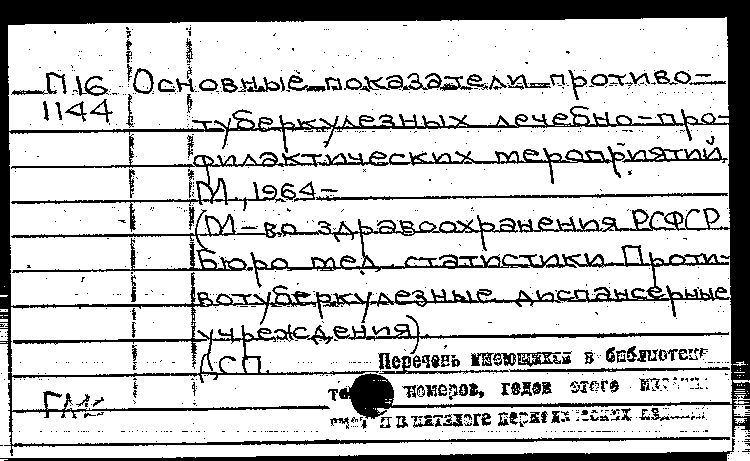 П16 Основные показатели противо-
1144 туберкулезных лечебно-про-
филактических мероприятий.
М., 1964-
(М-во здравоохранения РСФСР
Бюро мед. статистики Проти-
вотуберкулезные диспансерные
учреждения).
ДСП.
Перечень имеющихся в библиотеке
номеров, годов этого
в каталоге периодических изданий